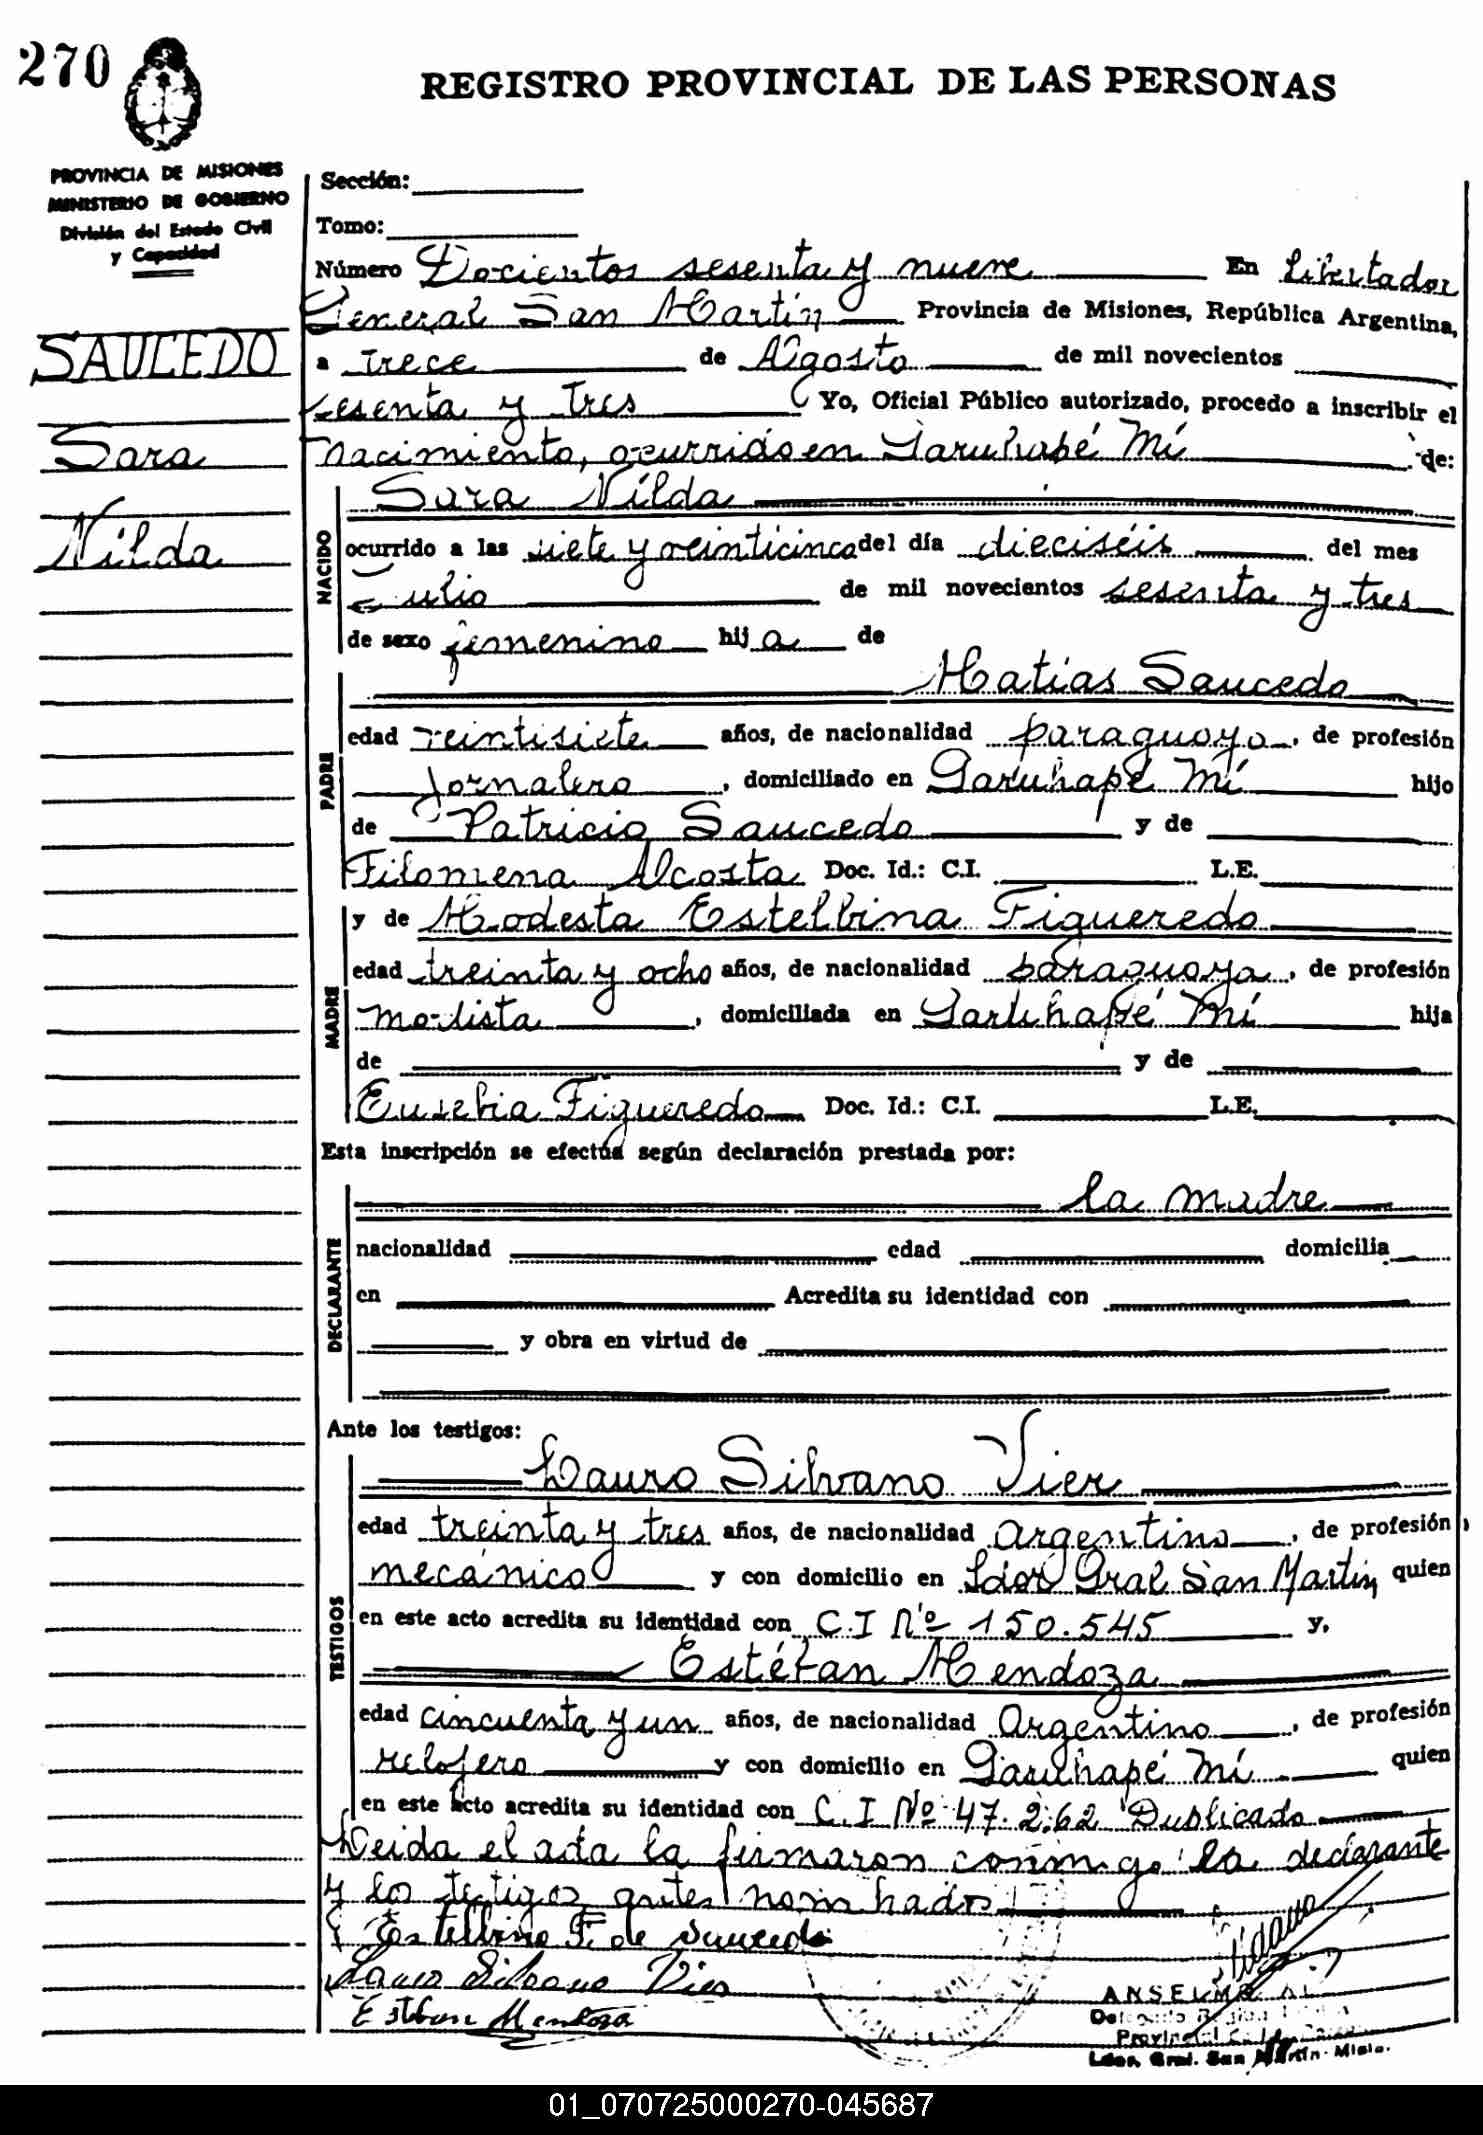 270
REGISTRO PROVINCIAL DE LAS PERSONAS
PROVINCIA DE MISIONES
MINISTERIO DE GOBIERNO
División del Estado Civil
y Capacidad
SAUCEDO
Sara
Nilda
Sección:
Tomo:
Número Docientos sesenta y nueve En Libertador
General San Martín Provincia de Misiones, República Argentina,
a trece de Agosto de mil novecientos
sesenta y tres Yo, Oficial Público autorizado, procedo a inscribir el
nacimiento, ocurrido en Garuhapé Mí de:
NACIDO
Sara Nilda
ocurrido a las siete y veinticinco del día dieciséis del mes
Julio de mil novecientos sesenta y tres
de sexo femenino hij a de
PADRE
Matías Saucedo
edad veintisiete años, de nacionalidad paraguayo, de profesión
Jornalero, domiciliado en Garuhapé Mí hijo
de Patricio Saucedo y de
Filomena Alcosta Doc. Id.: C.I. L.E.
MADRE
y de Modesta Estelbina Figueredo
edad treinta y ocho años, de nacionalidad paraguaya, de profesión
modista, domiciliada en Garuhapé Mí hija
de y de
Eusebia Figueredo Doc. Id.: C.I. L.E.
Esta inscripción se efectúa según declaración prestada por:
DECLARANTE
la madre
nacionalidad edad domicilia
en Acredita su identidad con
y obra en virtud de
Ante los testigos:
TESTIGOS
Lauro Silvano Vier
edad treinta y tres años, de nacionalidad Argentino, de profesión
mecánico y con domicilio en Ldor Gral San Martín quien
en este acto acredita su identidad con C.I Nº 150.545 y,
Estéban Mendoza
edad cincuenta y un años, de nacionalidad Argentino, de profesión
relojero y con domicilio en Garuhapé Mí quien
en este acto acredita su identidad con C.I Nº 47.262 Duplicado
Leida el acta la firmaron conmigo la declarante
y los testigos antes nombrados
Estelbina F. de Saucedo
Lauro Silvano Vier
Esteban Mendoza
ANSELMO
Provincial
Ldor. Gral. San Martín - Misio.
01_070725000270-045687